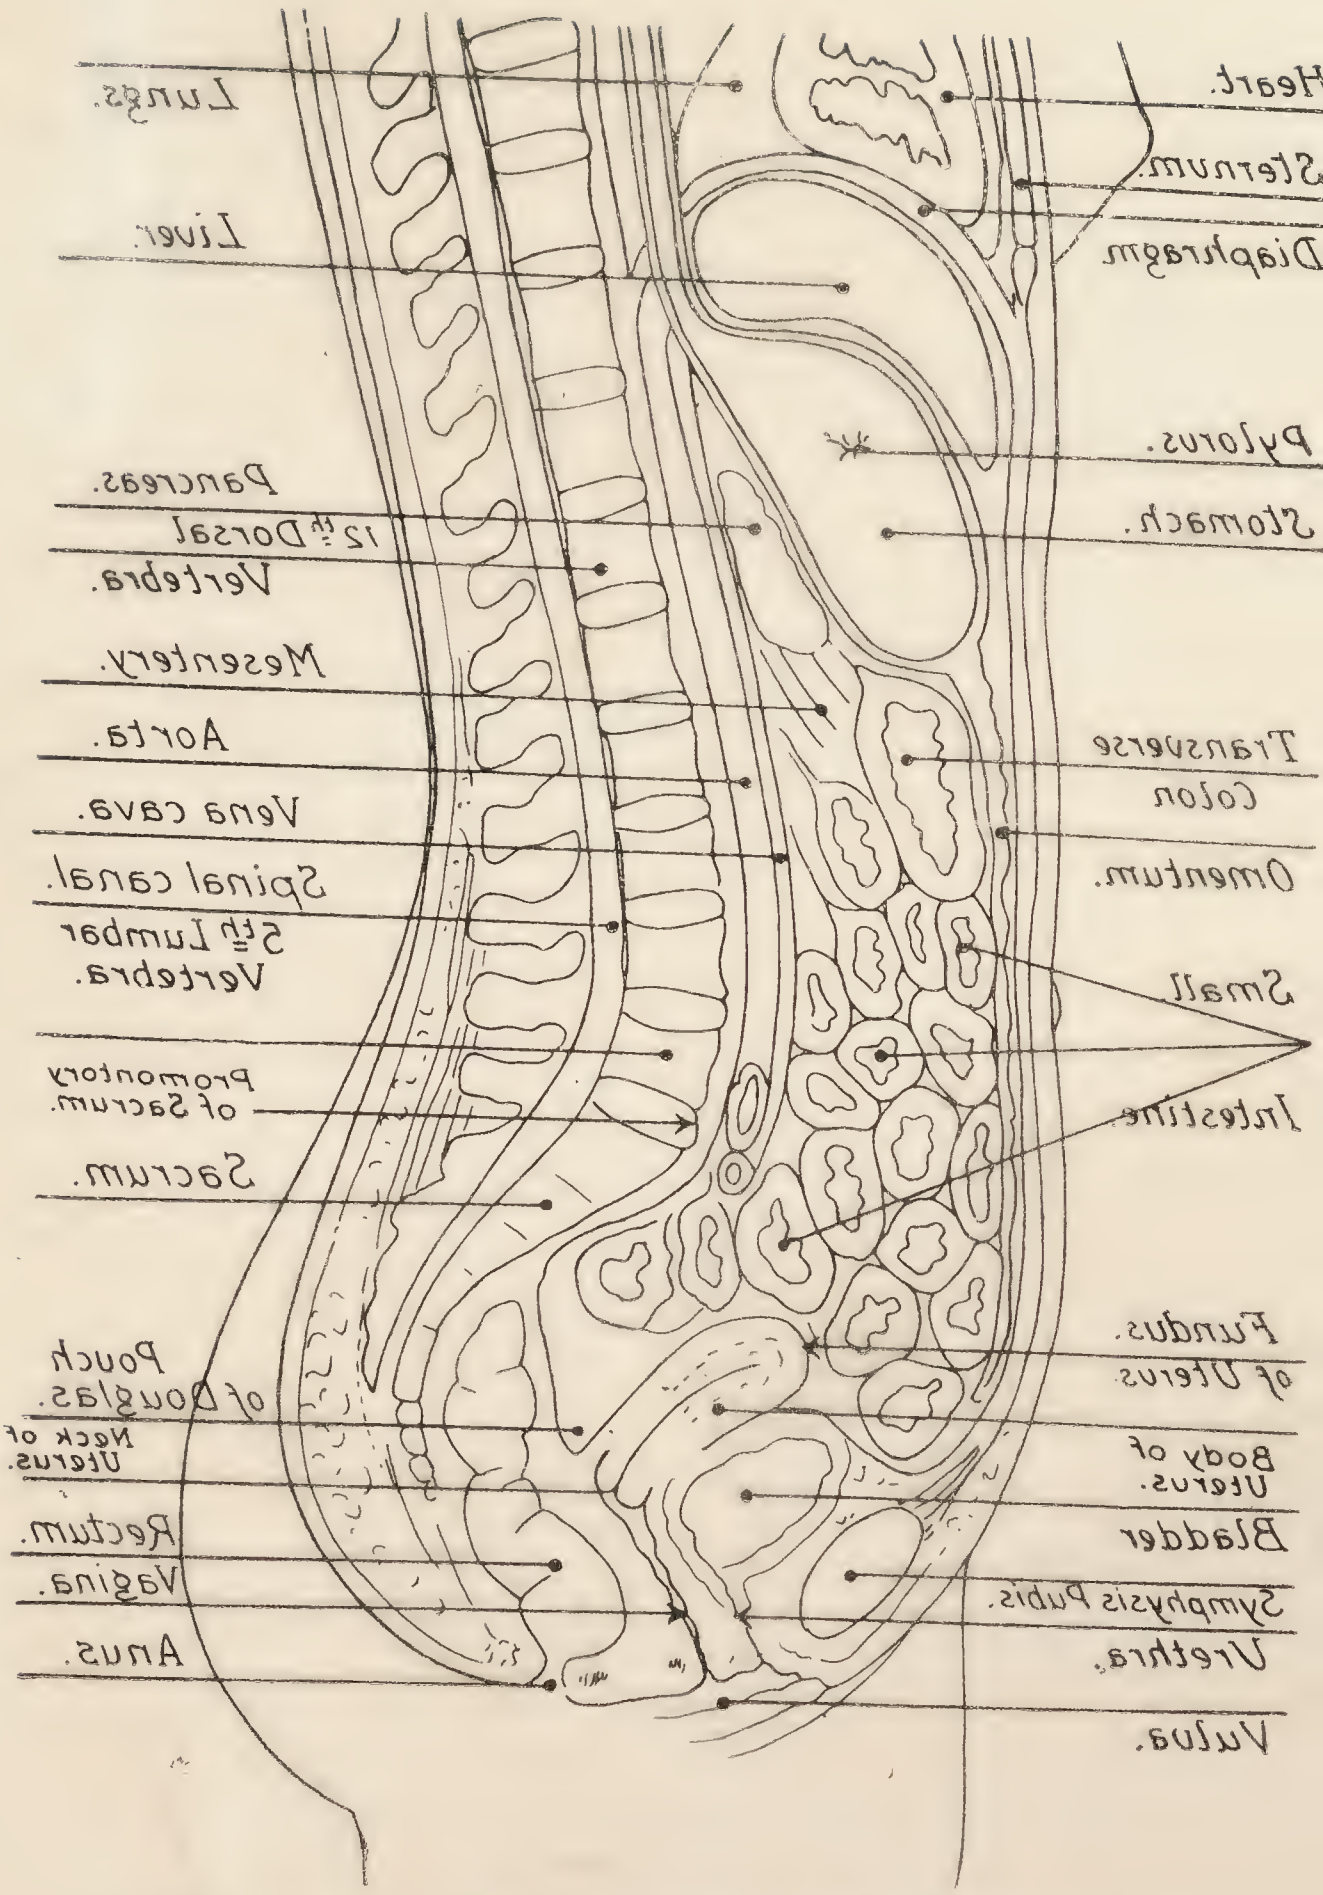 Lungs.
Liver.
Pancreas.
12th Dorsal
Vertebra.
Mesentery.
Aorta.
Vena cava.
Spinal canal.
5th Lumbar
Vertebra.
Promontory
of Sacrum.
Sacrum.
Pouch
of Douglas.
Neck of
Uterus.
Rectum.
Vagina.
Anus.
Heart.
Sternum.
Diaphragm
Pylorus.
Stomach.
Transverse
Colon
Omentum.
Small
Intestine.
Fundus.
of Uterus.
Body of
Uterus.
Bladder
Symphysis Pubis.
Urethra.
Vulva.